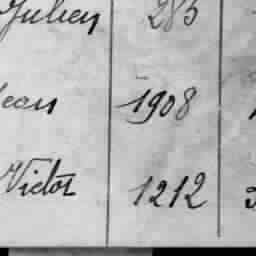 Julien 285
Jean 1908
Victor 1212